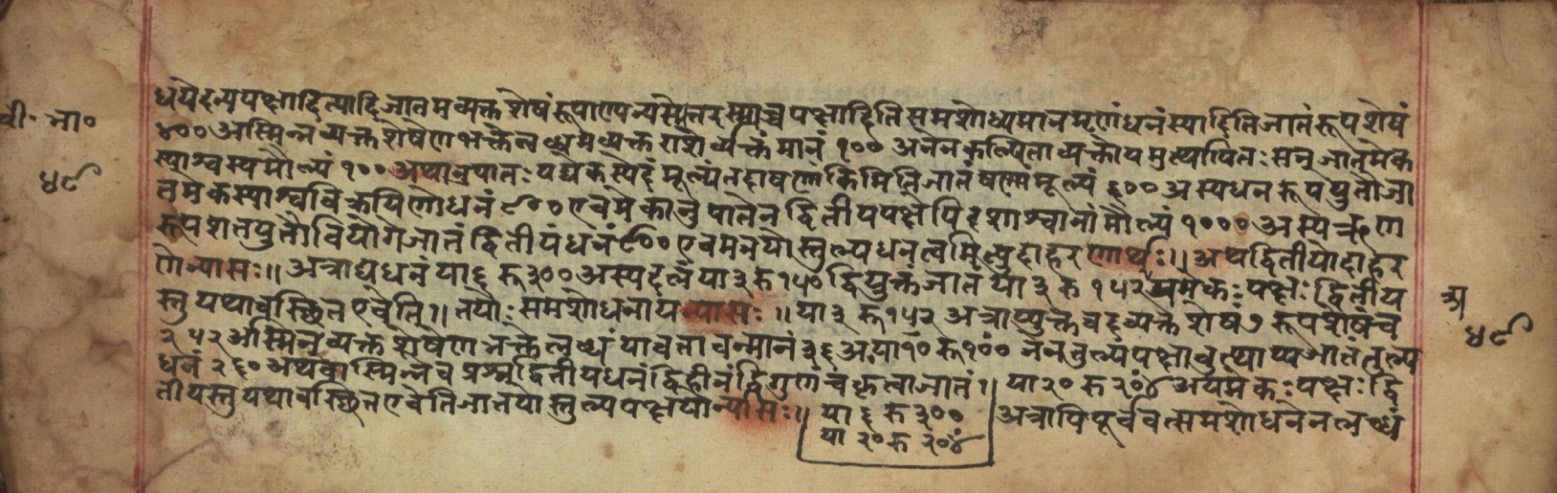 धयेदन्यपक्षादित्यादिजातमव्यक्तशेषंरूपाण्यन्यस्येतरस्माच्चपक्षादितिसमशोध्यमानमृणंधनंस्यादितिजातंरूपशेषं
वी॰ भा॰
४०० अस्मिन्नव्यक्तशेषेणभक्तेलब्धमेव्यक्तराशेर्व्यक्तंमानं १०० अनेनकल्पिताव्यक्तोयमुत्थापितःसन् जातमेक
स्याश्वस्यमौल्यं १०० अथानुपातःयद्येकस्येदंमूल्यंतदाषण्णांकिमितिजातंषण्णांमूल्यं ६०० अस्यधनरूपयुतौजा
४९
तमेकस्याश्वविक्रयिणोधनं ९०० एवमेकानुपातेनद्वितीयपक्षेपिदशाश्वानांमौल्यं १००० अस्यऋण
रूपशतयुतौवियोगेजातंद्वितीयंधनं ९०० एवमनयोस्तुल्यधनत्वमित्युदाहरणार्थः॥ अथद्वितीयोदाहर
णेन्यासः॥ अत्राद्यधनंया ६ रू ३०० अस्यदलंया ३ रु १५० द्वियुक्तंजातंया ३ रु १५२ अयमेकःपक्षःद्वितीय
स्तुयथावस्थितएवेति॥ तयोःसमशोधनायन्यासः॥ या ३ रू १५२ अत्राप्युक्तवदव्यक्तशेषं ७ रूपशेषंच
२५२ अस्मिन्नव्यक्तशेषेणभक्तेलब्धंयावत्तावन्मानं ३६ या १० रू १०० तुल्यंपक्षावुत्थाप्यजातंतुल्य
४९
धनं २६० अथवास्मिन्नेवप्रश्नेद्वितीयधनंद्विहीनंद्विगुणंचकृत्वाजातं॥ या २० रु २०४ अयमेकःपक्षःद्वि
तीयस्तुयथावस्थितएवेतिजातयोस्तुल्यपक्षयोर्न्यासः॥ या ६ रु ३०० अत्रापिपूर्ववत्समशोधनेनलब्धं
या २० रु २०४